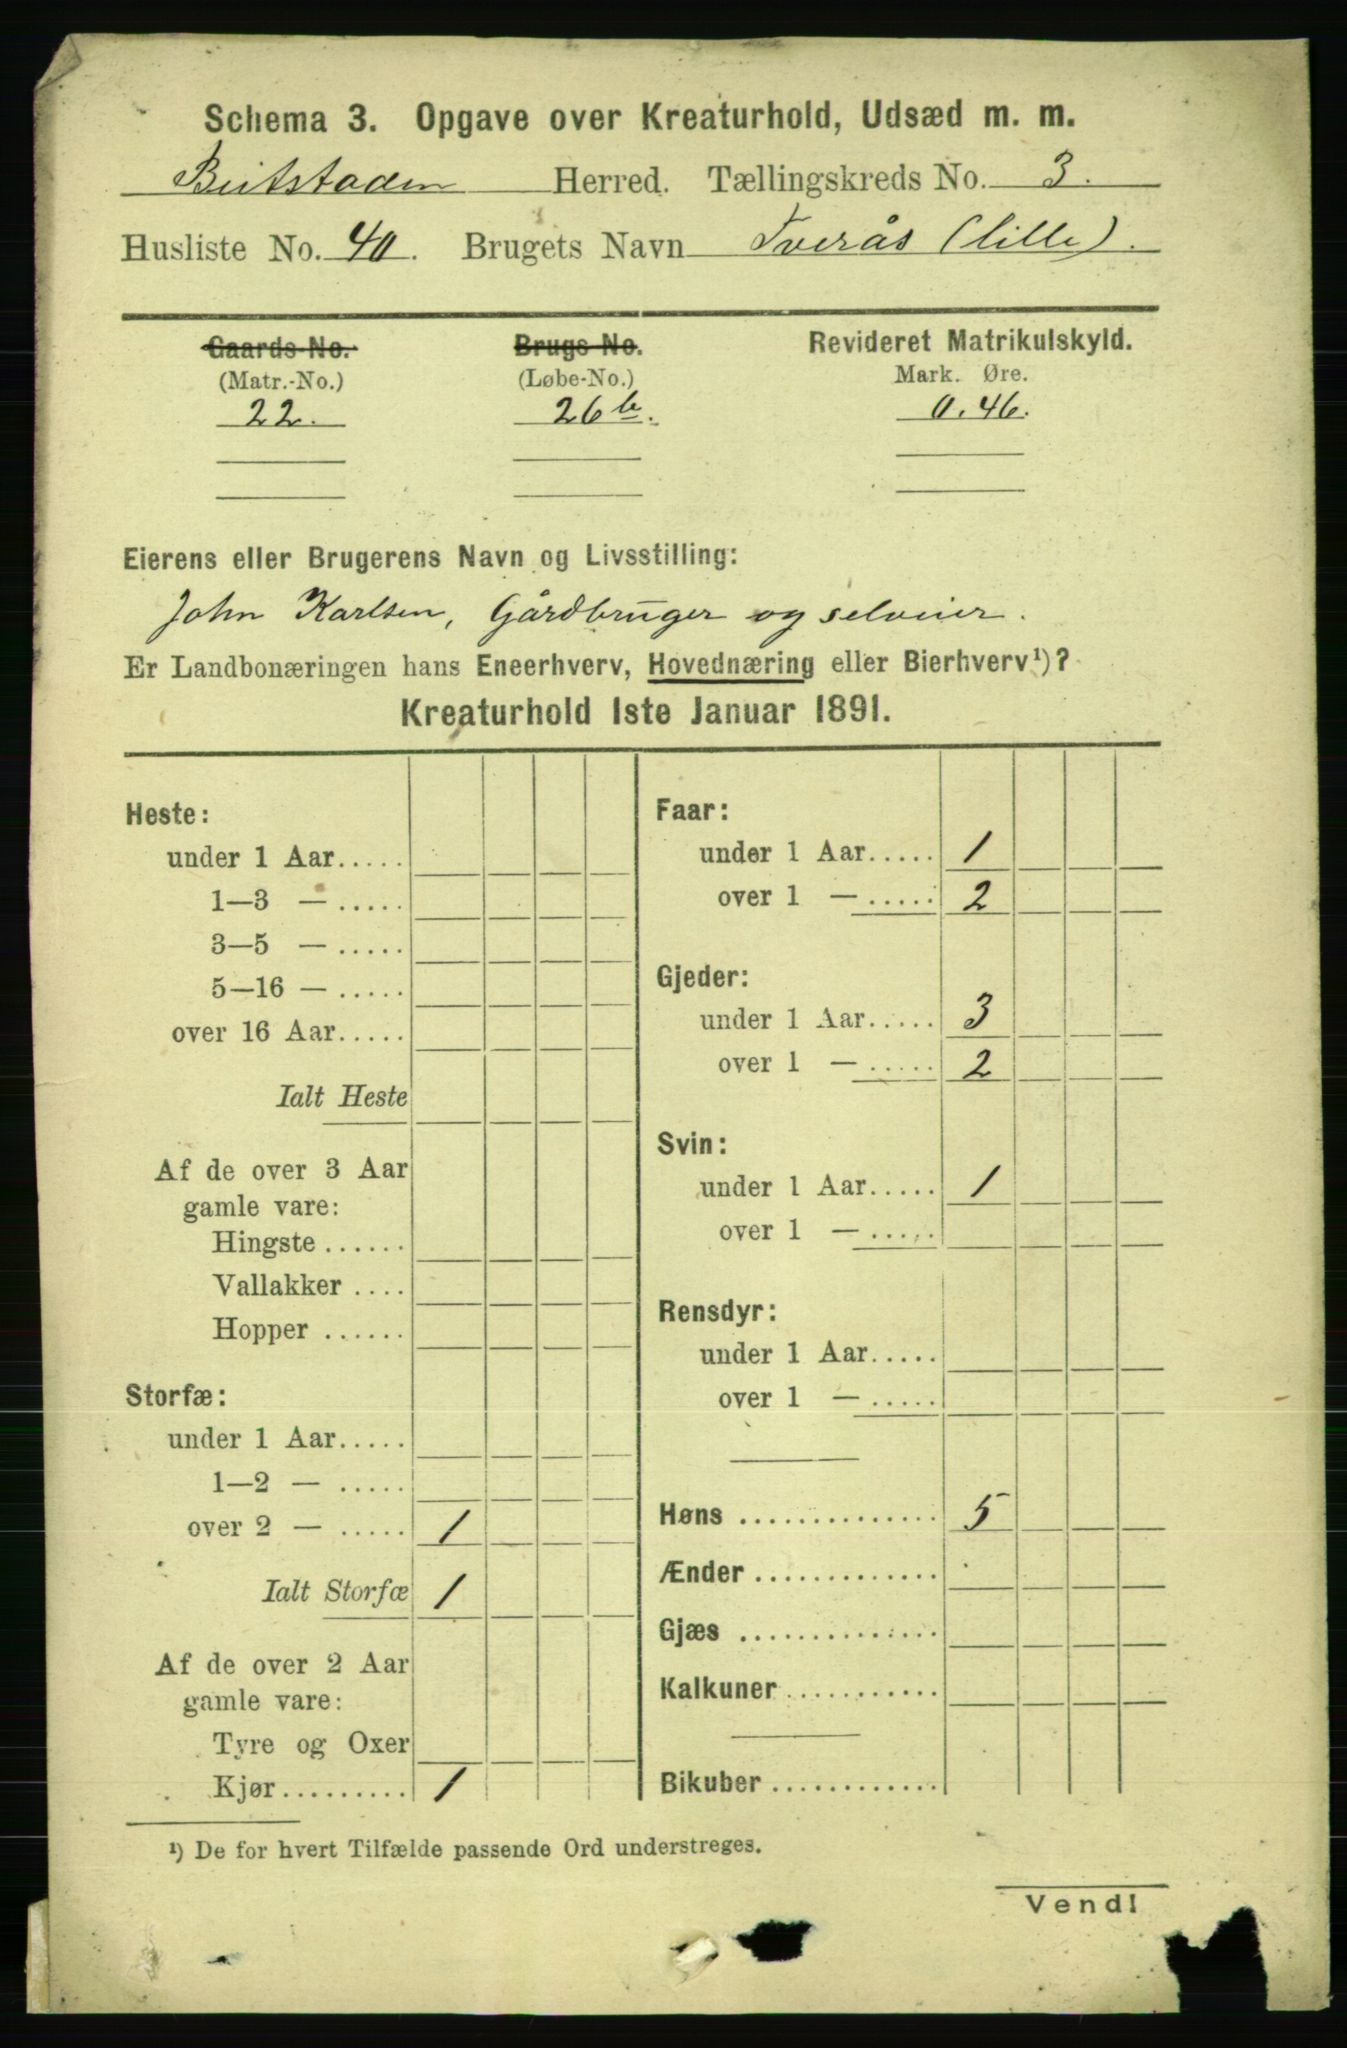 Schema 3. Opgave over Kreaturhold, Udsæd m. m.
Beitstaden Herred. Tællingskreds No. 3.
Husliste No. 40. Brugets Navn Tverås (lille).
Gaards-No. Brugs-No. Revideret Matrikulskyld.
(Matr.-No.) (Løbe-No.) Mark. Øre.
22. 26 b. 0.46.
Eierens eller Brugerens Navn og Livsstilling:
John Karlsen, Gårdbruger og selveier.
Er Landbonæringen hans Eneerhverv, Hovednæring eller Bierhverv¹)?
Kreaturhold 1ste Januar 1891.
Heste:
under 1 Aar.....
1—3 — .....
3—5 — .....
5—16 — .....
over 16 Aar.....
Ialt Heste
Af de over 3 Aar
gamle vare:
Hingste ......
Vallakker ....
Hopper ......
Storfæ:
under 1 Aar.....
1—2 — .....
over 2 — ..... 1
Ialt Storfæ 1
Af de over 2 Aar
gamle vare:
Tyre og Oxer
Kjør......... 1
Faar:
under 1 Aar..... 1
over 1 — ..... 2
Gjeder:
under 1 Aar..... 3
over 1 — ..... 2
Svin:
under 1 Aar..... 1
over 1 — .....
Rensdyr:
under 1 Aar.....
over 1 — .....
Høns .............. 5
Ænder .............
Gjæs ..............
Kalkuner ...........
Bikuber ............
¹) De for hvert Tilfælde passende Ord understreges.
Vend!